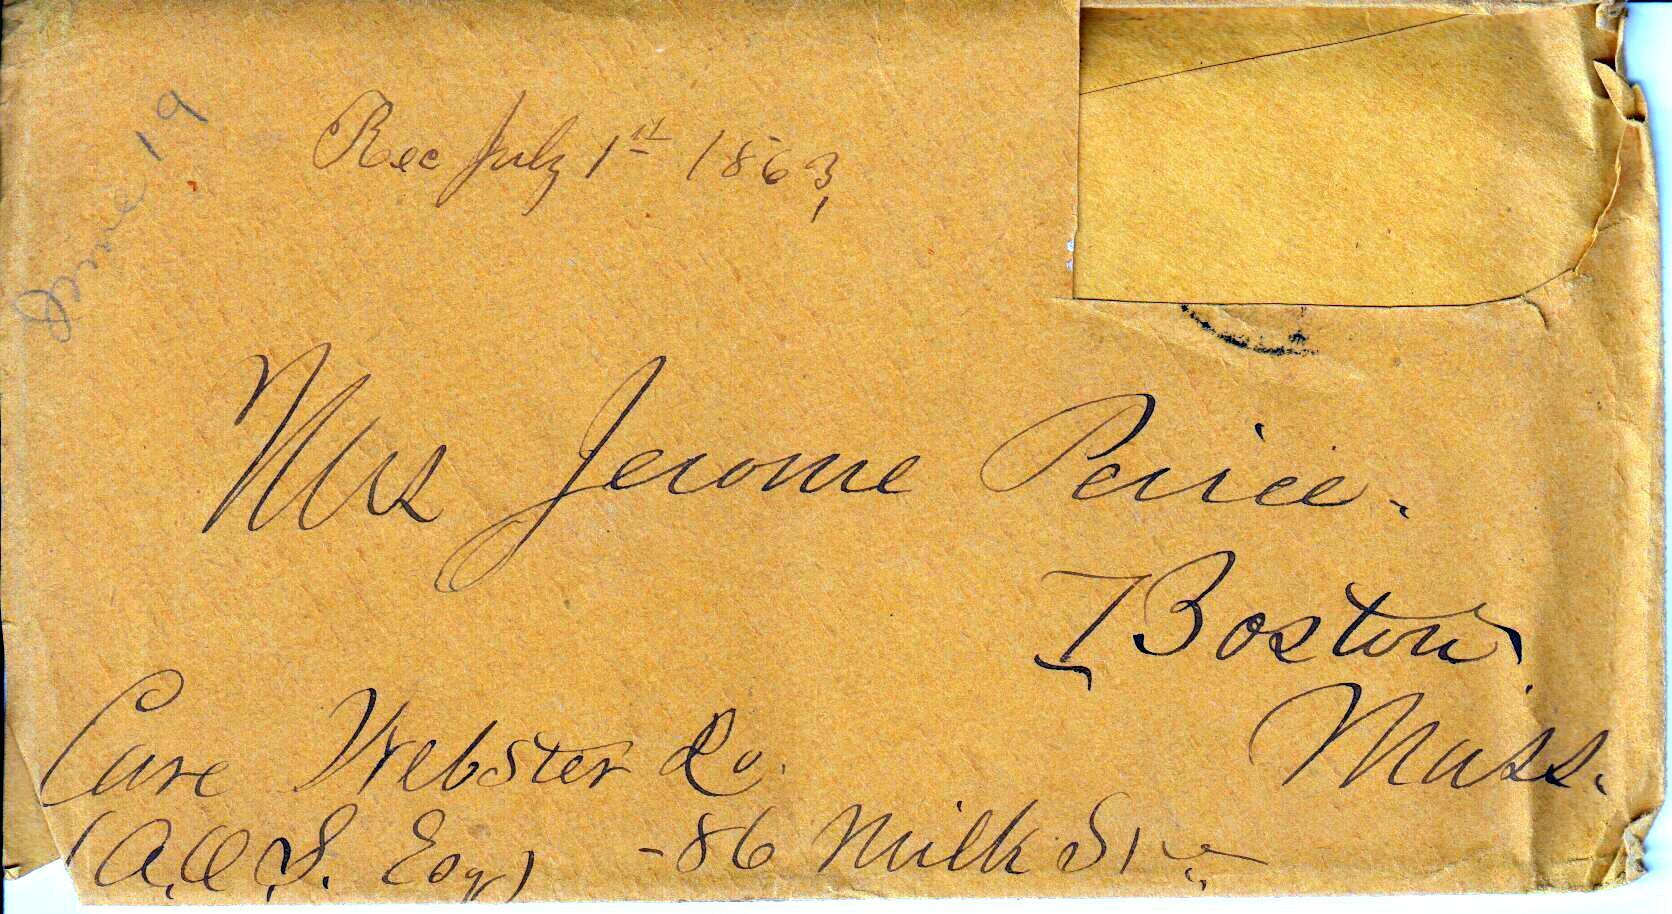 June 19
Rec July 1st 1863,
Mrs Jerome Peirce.
Boston
Mass.
Care Webster & Co.
(A.O.S. Esq) - 86 Milk St.